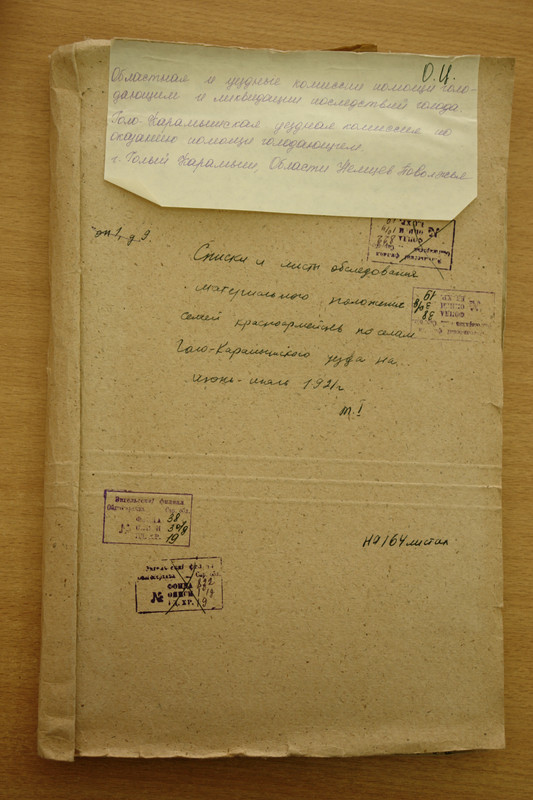 О.Ц.
Областная и уездные комиссии помощи голо-
дающим и ликвидации последствий голода
Голо-Карамышская уездная комиссия по
оказанию помощи голодающем
г. Голый Карамыш, Области Немцев Поволжья
оп 1, д 9.
Списки и лист обследования
материального положение
семей красноармейцев по селам
Голо-Карамышского уезда на
июнь-июль 1921 г
т. I
ФОНДА 38
№ ОПИСИ
ЕД. ХР. 19
На 164 листах
Энгельский филиал
Сар. обл.
ФОНДА 38
№ ОПИСИ
ЕД. ХР. 19
Сар. обл.
ФОНДА
№ ОПИСИ
ЕД. ХР. 9